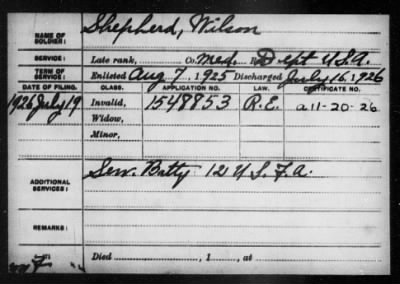 Shepherd, Wilson
NAME OF SOLDIER:
SERVICE: Late rank, Co. Med. R Dept U.S.A.
TERM OF SERVICE: Enlisted Aug 7, 1925 Discharged July 16, 1926
DATE OF FILING. CLASS. APPLICATION NO. LAW. CERTIFICATE NO.
1926 July 19 Invalid, 1548853 R.E. a 11-20-26
Widow,
Minor,
ADDITIONAL SERVICES: Serv. Batty 12 U S. F. A.
REMARKS:
Died , 1 , at